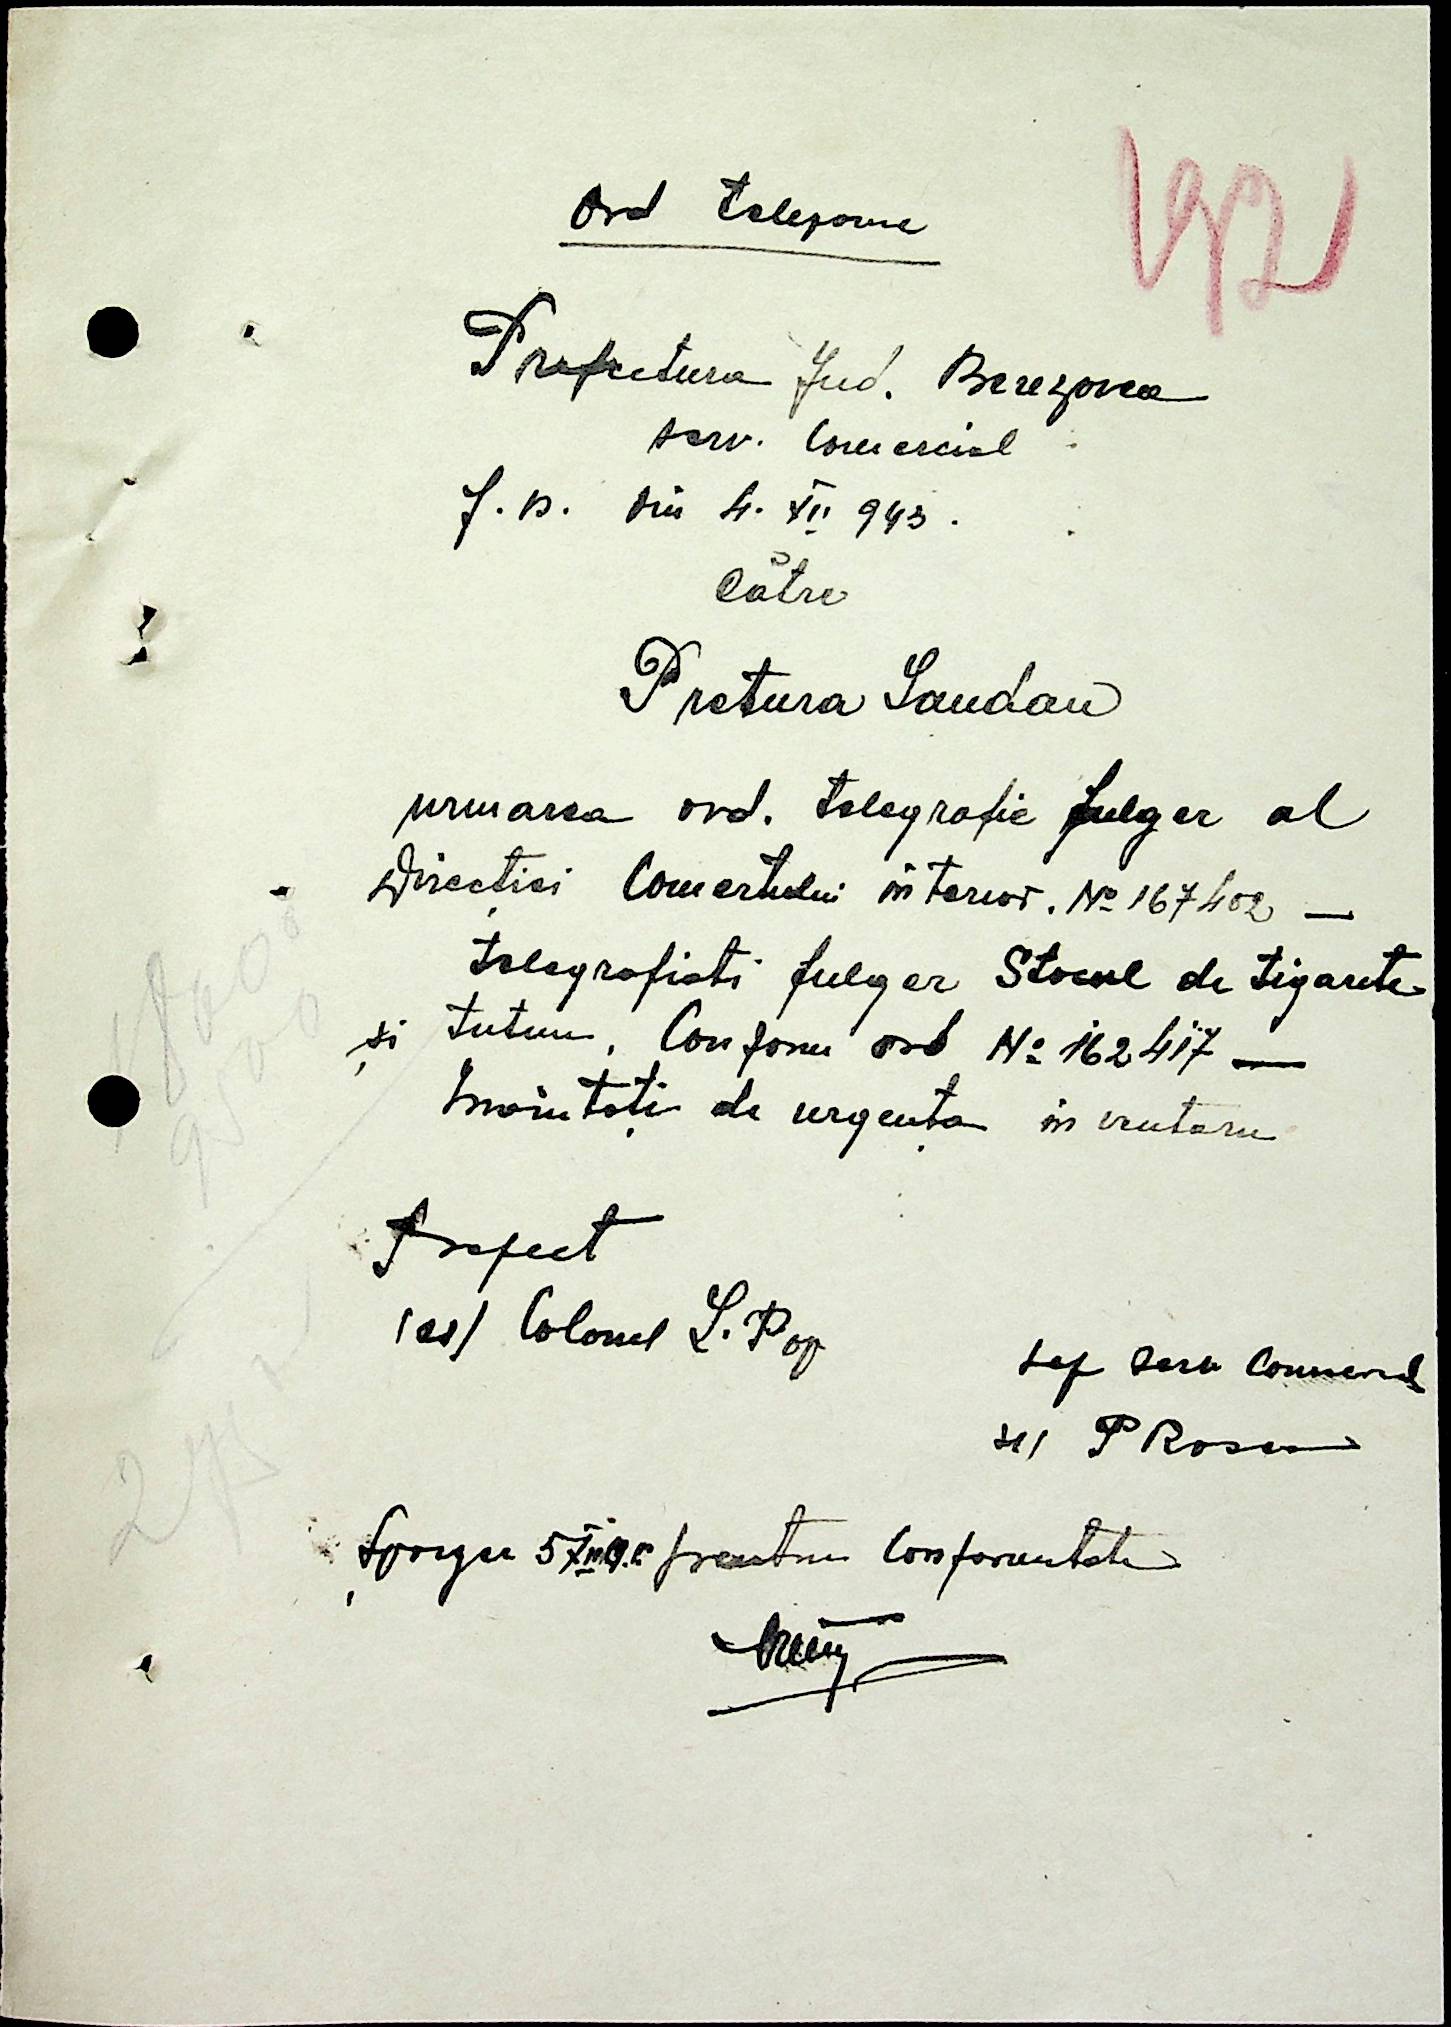 192
Ord telefonic
Prefectura Jud. Berezovca
serv. Comercial
f. n. din 4. XII 943.
Către
Pretura Landau
urmarea ord. telegrafic fulger al
Direcției Comertului interior. No 167402 —
telegrafiati fulger Stocul de tigarete
și tutun, Conform ord No 162417 —
Inaintați de urgența inventaru
Prefect
(ss) Colonel L. Pop
sef serv Comercial
ss) P Rosca
5 XII pentru Conformitate